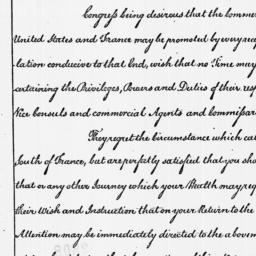 Congress being desirous that the Comme
United States and France may be promoted by every reg
lation conducive to that End, wish that no Time may
certaining the Privileges, Powers and Duties of their resp
Vice Consuls and commercial Agents and Commissar
They regret the Circumstance which cal
South of France, but are perfectly satisfied that you sho
that or any other Journey which your Health may reg
their Wish and Instruction that on your Return to the
Attention may be immediately directed to the above m